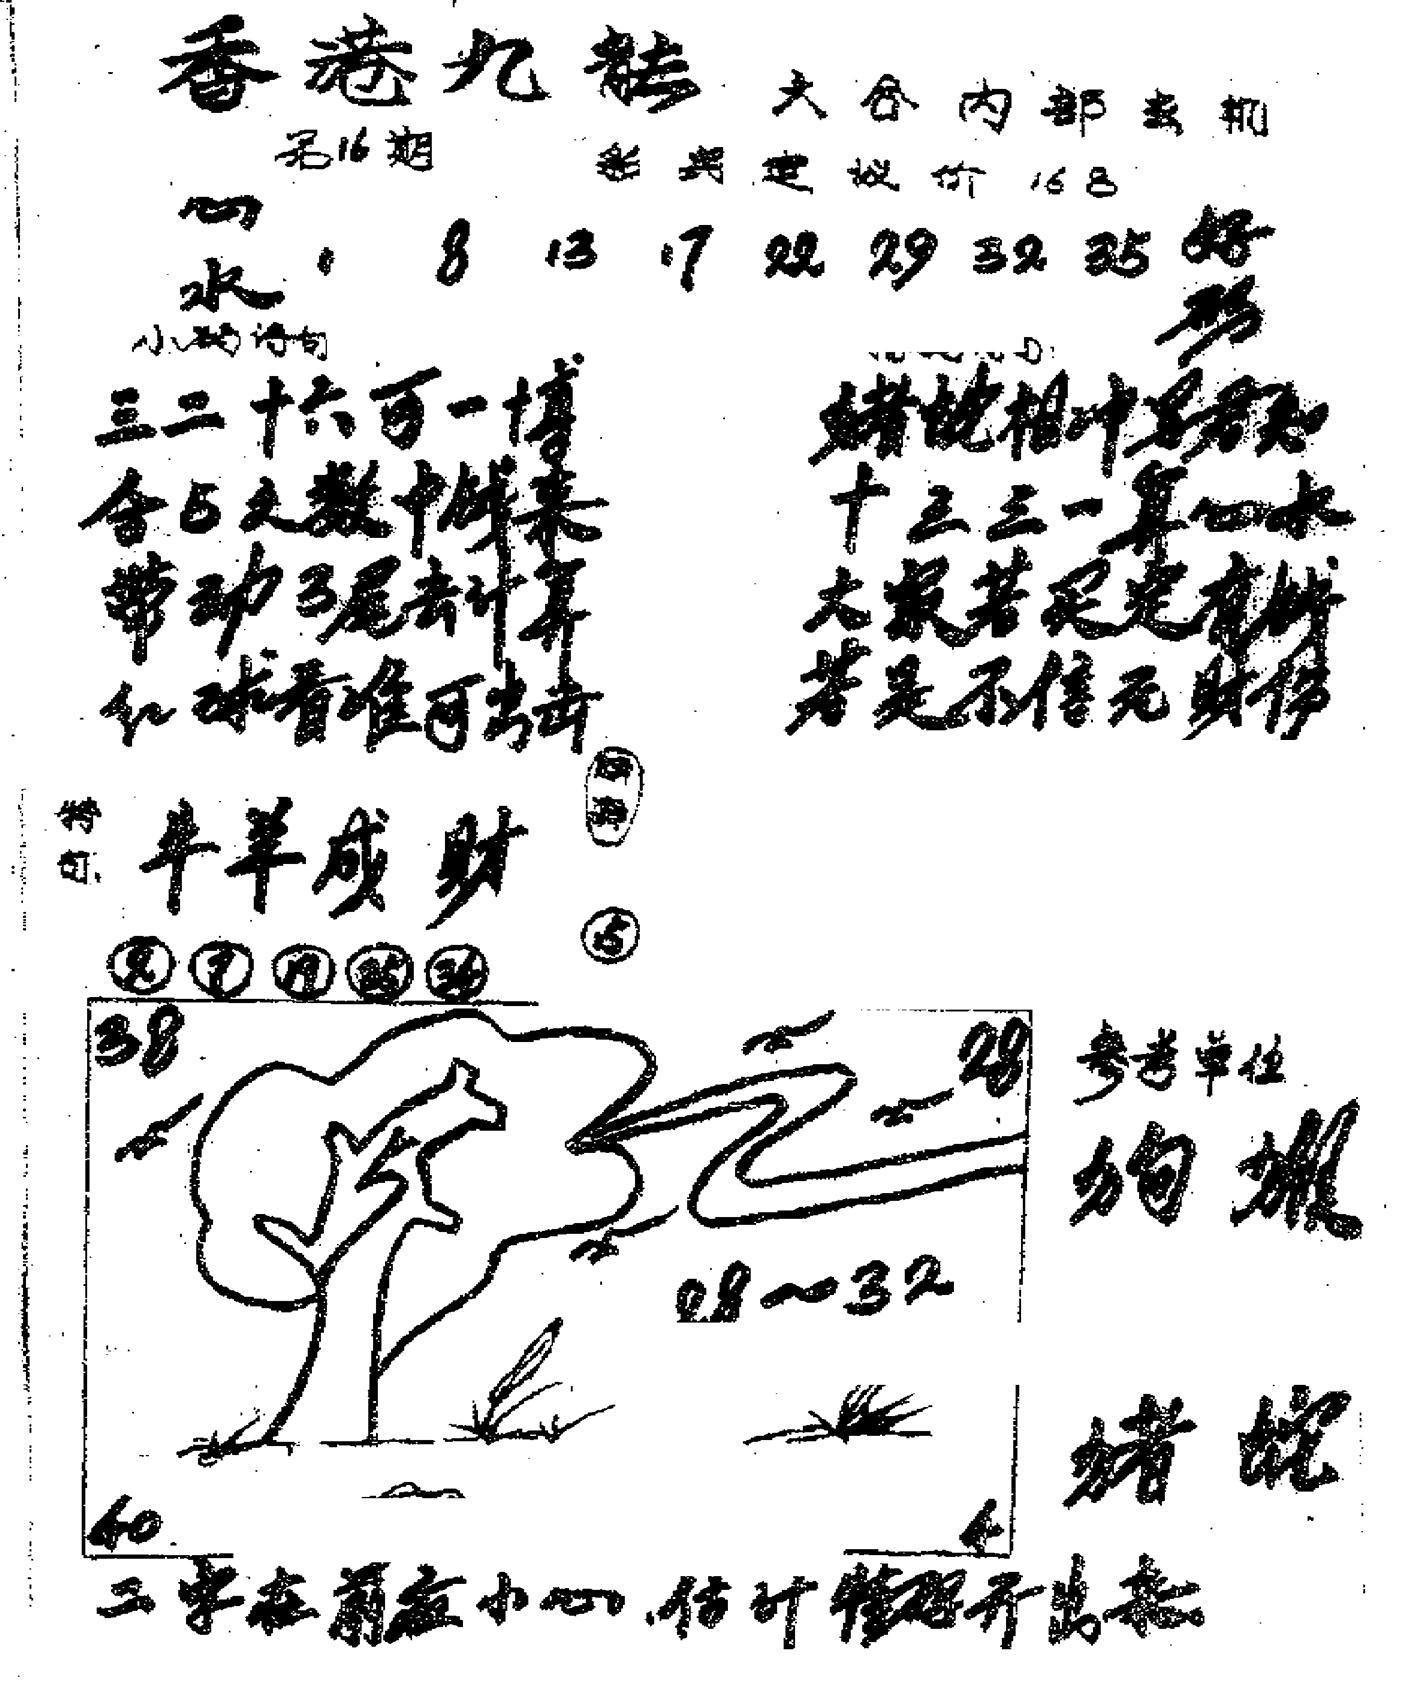 香港九龍
六合内部玄机
若16期
彩票建议价 168
心水
1 8 13 17 22 29 32 35
好彩
小码诗句
三二十六可一博
含5之数中钱来
带动3尾去计算
红球看准可出击
猪蛇相冲君知
十三三一算心水
大家若买定有钱
若是不信无财份
特
句
牛羊成财
5
2 7 17 35 36
38
28
28～32
40
4
参考单位
狗猴
猪蛇
二字在前应小心.估计特码开出来.